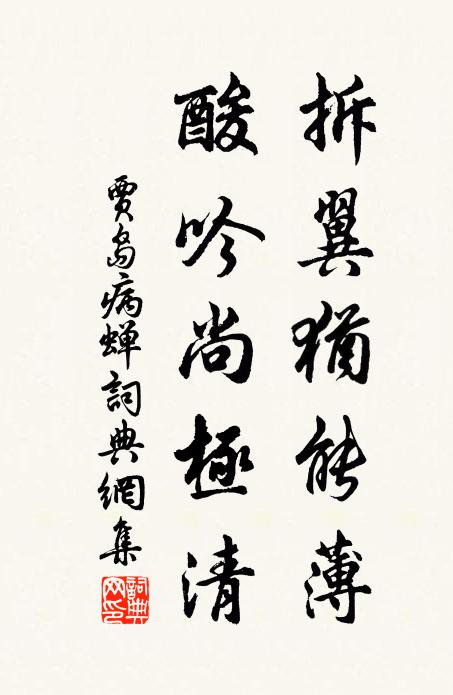 拆翼猶能薄
酸吟尚極清
賈島病蝉詞典網集
詞典网印